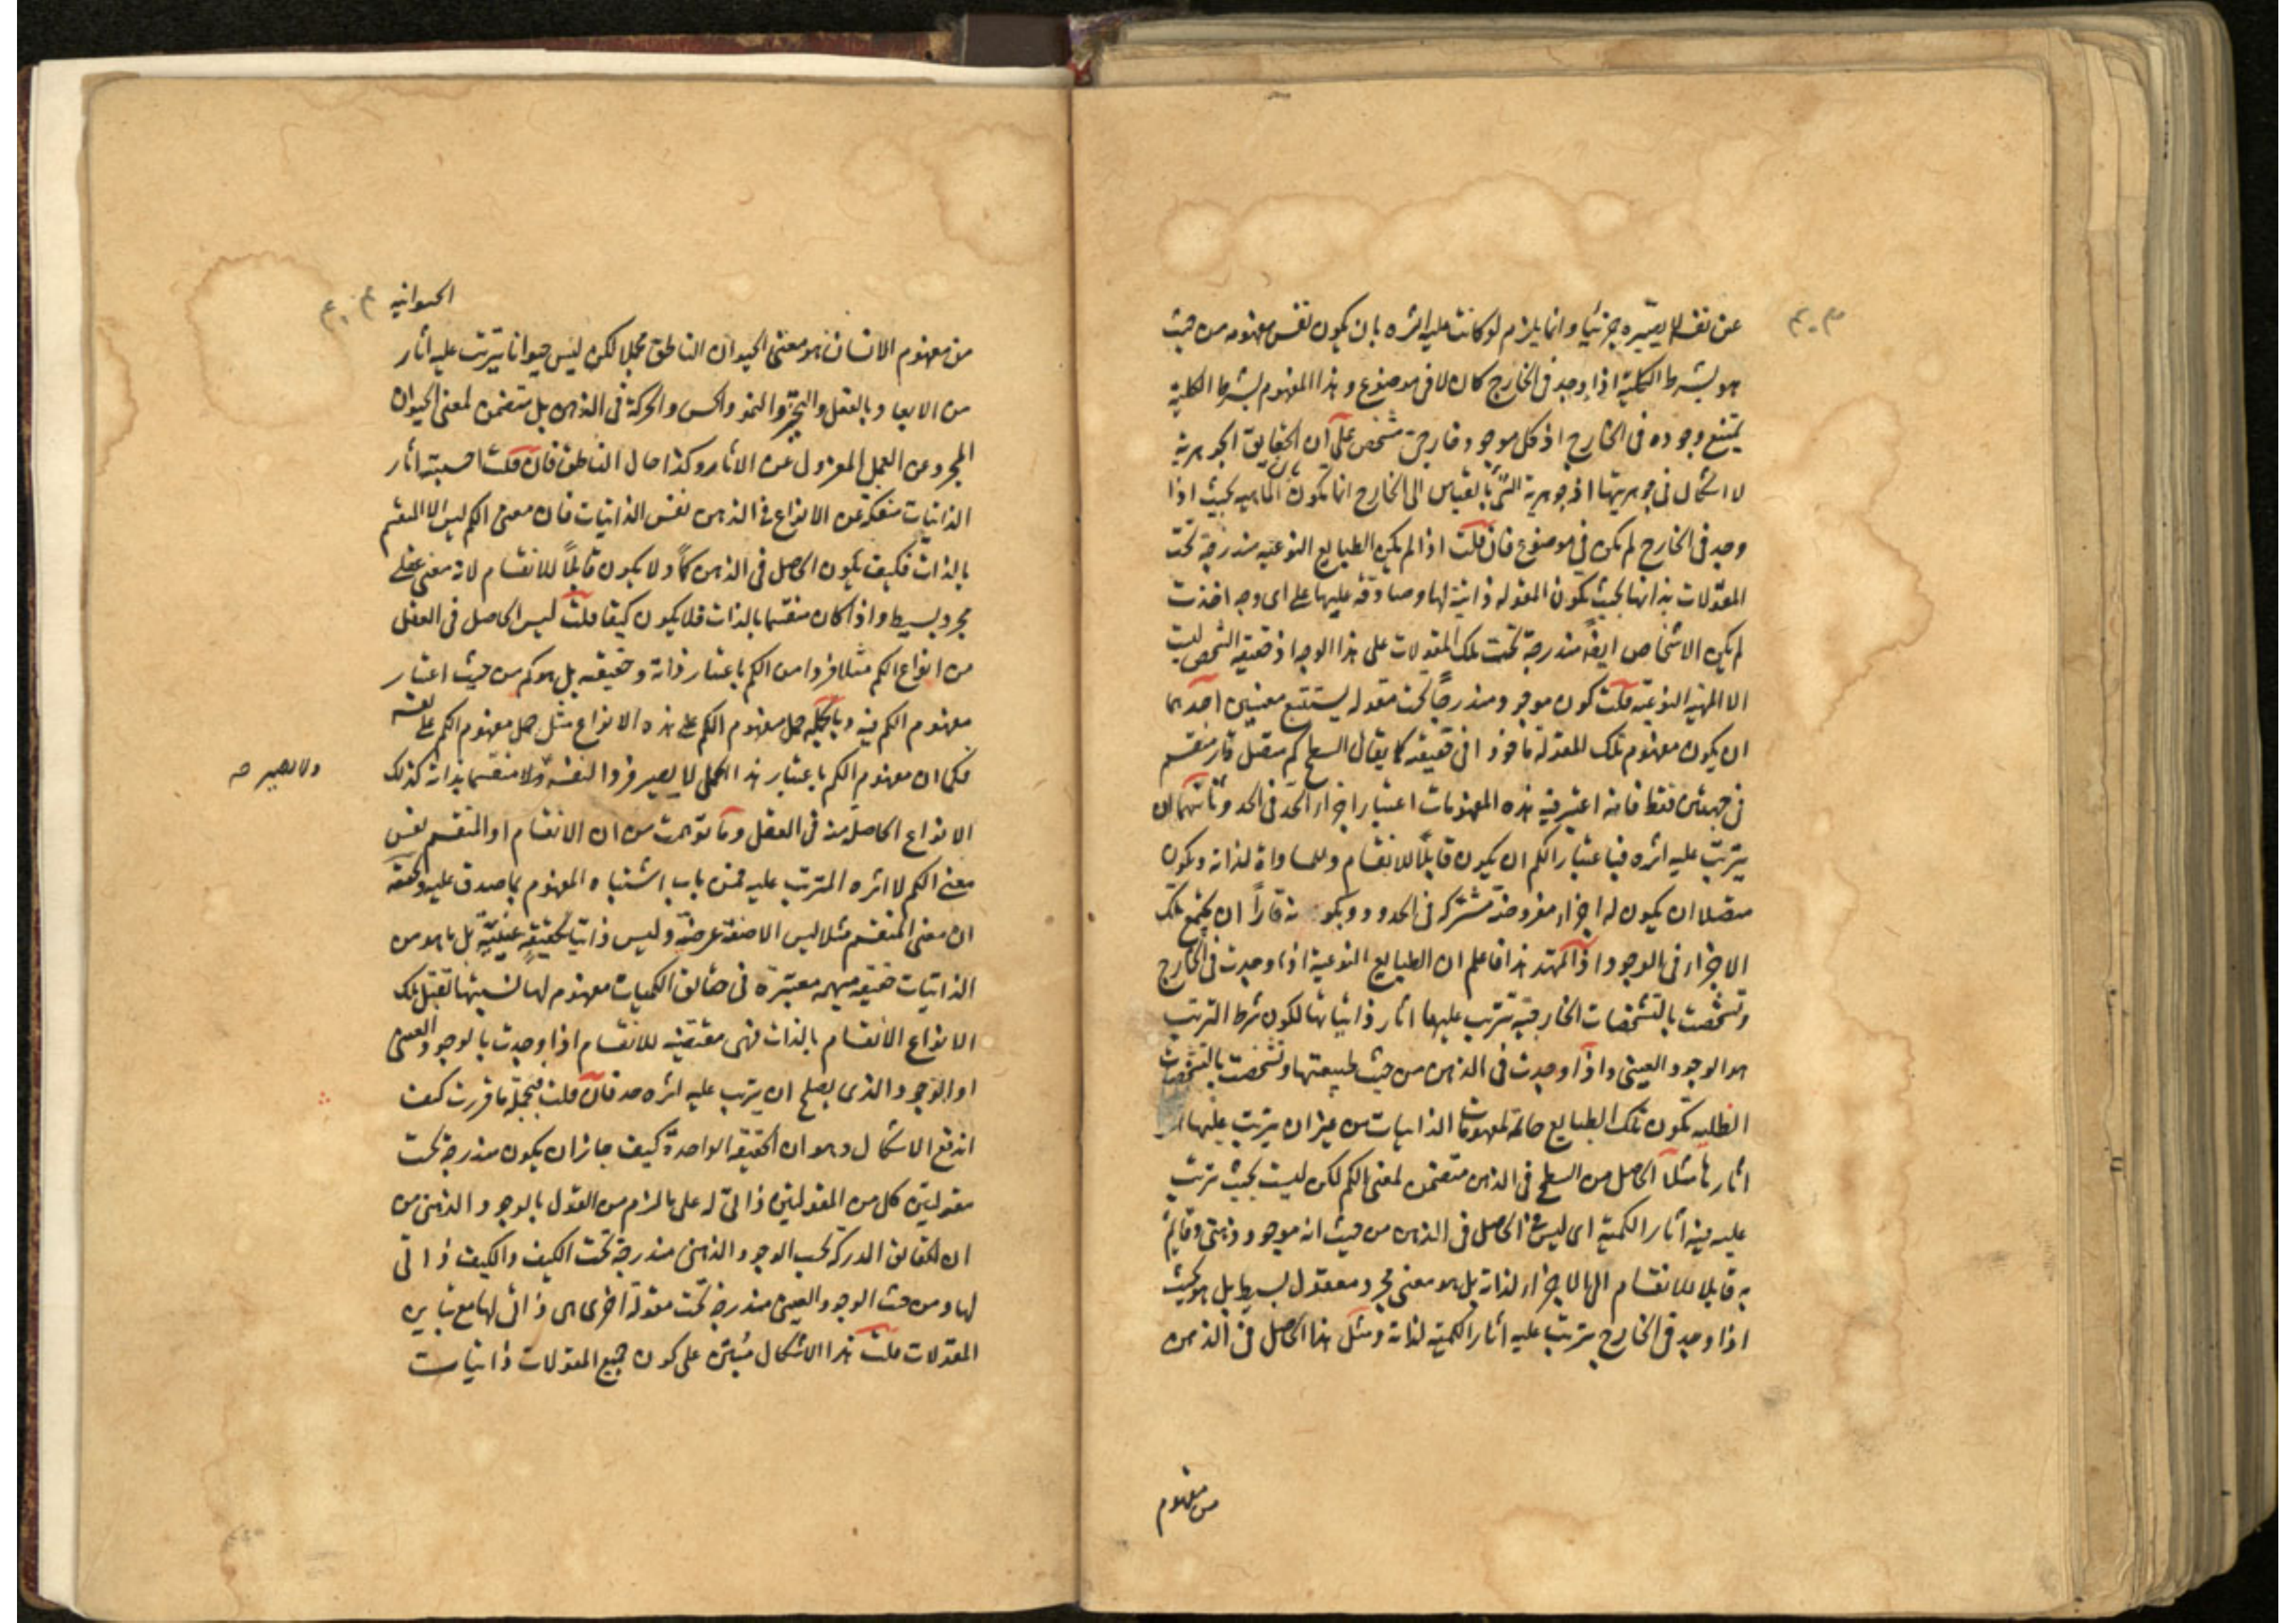 عن نفسه لا يصيّره جزئيا وانما يلزم لو كانت عليه اثره بان يكون نفس مفهومه من حيث
هو بشرط الكلية اذا وجد فى الخارج كان لا فى موضوع وهذا المفهوم بشرط الكلية
يمتنع وجوده فى الخارج اذ كل موجود خارجى مشخص على ان الحقايق الجوهرية
لا اشكال فى جوهريتها اذ جوهرية الشئ بالقياس الى الخارج انما تكون الماهيه بحيث اذا
وجد فى الخارج لم يكن فى موضوع فان قلت اذا لم يكن الطبايع النوعيه مندرجة تحت
المقولات بذاتها بحيث يكون المقوله ذاتية لها وصادقه عليها على اى وجه اخذت
لم يكن الاشخاص ايضا مندرجة تحت تلك المقولات على هذا الوجه اذ حقيقه الشخص ليست
الا المهية النوعيه قلت كون موجود مندرجا تحت مقوله يستتبع معنيين احدهما
ان يكون مفهوم تلك المقولة ماخوذا فى حقيقته كما يقال السطح كم متصل قار منقسم
فى جهتين فقط فانه اعتبر فيه هذه المفهومات اعتبار اجزاء الحد فى الحد وثانيهما ان
يترتب عليه اثره فباعتبار الكم ان يكون قابلا للانقسام وللمساواة لذاته ويكون
متصلا ان يكون له اجزاء مفروضة مشتركه فى الحدود وبكونه قارا ان يجتمع تلك
الاجزاء فى الوجود واذا تمهد هذا فاعلم ان الطبايع النوعية اذا وجدت فى الخارج
وتشخصت بالتشخصات الخارجية يترتب عليها اثار ذاتياتها لكون شرط الترتب
هو الوجود العينى واذا وجدت فى الذهن من حيث طبيعتها وتشخصت بالتشخصات
الظليه تكون تلك الطبايع حاملة لمفهومات الذاتيات من غير ان يترتب عليها
اثارها مثلا الحاصل من السطح فى الذهن متضمن لمعنى الكم لكن ليست بحيث يترتب
عليه فيه اثار الكمية اى ليس الحاصل فى الذهن من حيث انه موجود ذهنى وقايم
به قابلا للانقسام الى الاجزاء لذاته بل هو معنى مجرد ومعقول بسيط بل هو بحيث
اذا وجد فى الخارج يترتب عليه اثار الكمية لذاته ومثل هذا الحاصل فى الذهن
من مفهوم
الحيوانيه
من مفهوم الانسان هو معنى الحيوان الناطق مجملا لكن ليس حيوانا يترتب عليه اثار
من الابعاد بالفعل والتحيز والنمو والحس والحركة فى الذهن بل متضمن لمعنى الحيوان
المجرد عن العمل المعزول عن الاثار وكذا حال الناطق فان قلت احسبت اثار
الذاتيات منفكة عن الانواع فى الذهن نفس الذاتيات فان معنى الكم ليس الا المنقسم
بالذات فكيف يكون الحاصل فى الذهن كما ولا يكون قابلا للانقسام لانه معنى عقلى
مجرد بسيط واذا كان منقسما بالذات فلا يكون كيفا قلت ليس الحاصل فى العقل
من انواع الكم مثلا فردا من الكم باعتبار ذاته وحقيقته بل هو كم من حيث اعتبار
مفهوم الكم فيه وبالجملة حمل مفهوم الكم على هذه الانواع مثل حمل مفهوم الكم على نفسه
فكما ان مفهوم الكم باعتبار هذا الحمل لا يصير فردا لنفسه ولا منقسما بذاته كذلك
ولا يصير صح
الانواع الحاصلة منه فى العقل وما توهمت من ان الانقسام او المنقسم نفس
معنى الكم لا اثره المترتب عليه فمن باب اشتباه المفهوم بما صدق عليه وتحققه
ان معنى المنقسم مثلا ليس الا صفة عرضية وليس ذاتيا لحقيقة عينية بل ما هو من
الذاتيات حقيقه مبهمه معتبرة فى حقائق الكميات مفهوم لها بسببها تقبل تلك
الانواع الانقسام بالذات فهى مقتضية للانقسام اذا وجدت بالوجود العينى
او الوجود الذى يصلح ان يترتب عليه اثره فان قلت فبجملة ما قررت كيف
اندفع الاشكال وهو ان الحقيقه الواحدة كيف جاز ان يكون مندرجة تحت
مقولتين كل من المقولتين ذاتى له على ما لزم من القول بالوجود الذهنى من
ان الحقائق المدركة بحسب الوجود الذهنى مندرجة تحت الكيف والكيف ذاتى
لها ومن حيث الوجود العينى مندرجة تحت مقولة اخرى هى ذاتى لها مع تباين
المقولات قلت هذا الاشكال مبتن على كون جميع المقولات ذاتيات